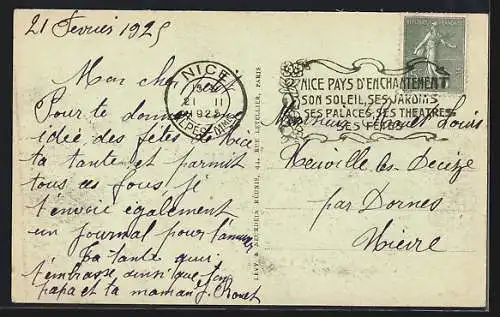 21 Fevrier 1925
Mon cher
Pour te donner
idée des fêtes de Nice
ta tante et parmit
tous ces fous. je
t'envoie également
un journal pour t'amuser
Ta tante qui
t'embrasse ainsi que ton
papa et ta maman J.
NICE
21 II
ALPES MMES
LEVY & NEURDEIN RÉUNIS, 44, RUE LETELLIER, PARIS
REPUBLIQUE FRANÇAISE
NICE PAYS D'ENCHANTEMENT
SON SOLEIL, SES JARDINS
SES PALACES, SES THEATRES
SES FETES
Louis
Neuville les-Decize
par Dornes
Nièvre